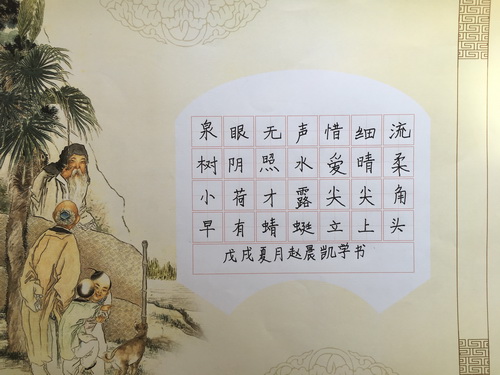 泉眼无声惜细流
树阴照水爱晴柔
小荷才露尖尖角
早有蜻蜓立上头
戊戌夏月赵晨凯学书